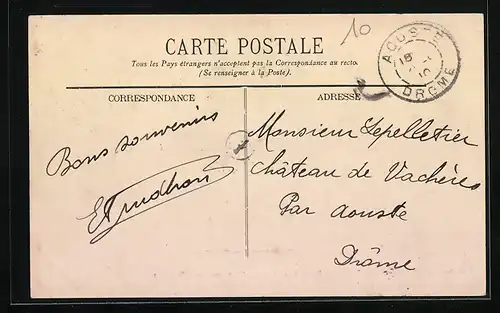 10
CARTE POSTALE
Tous les Pays étrangers n'acceptent pas la Correspondance au recto.
(Se renseigner à la Poste).
CORRESPONDANCE
ADRESSE
AOUSTE
DROME
Bons souvenirs
Monsieur Lepelletier
Château de Vachères
Par Aouste
Drôme